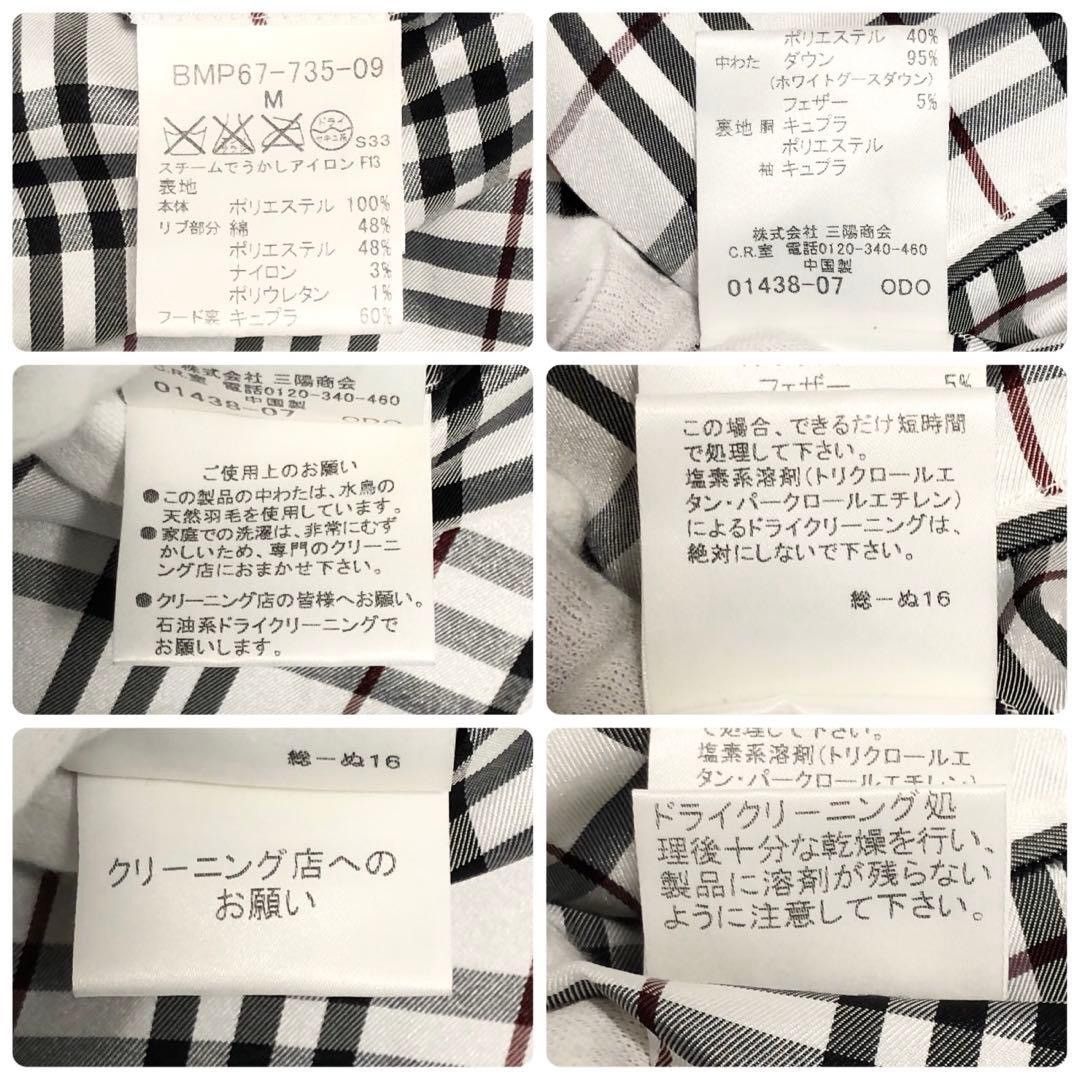 BMP67-735-09
M
ドライ
セキユ系
S33
スチームでうかしアイロン F13
表地
本体 ポリエステル 100%
リブ部分 綿 48%
ポリエステル 48%
ナイロン 3%
ポリウレタン 1%
フード裏 キュプラ 60%
ポリエステル 40%
中わた ダウン 95%
(ホワイトグースダウン)
フェザー 5%
裏地 胴 キュプラ
ポリエステル
袖 キュプラ
株式会社 三陽商会
C.R.室 電話0120-340-460
中国製
01438-07 ODO
株式会社 三陽商会
C.R.室 電話0120-340-460
中国製
01438-07 ODO
ご使用上のお願い
●この製品の中わたは、水鳥の
天然羽毛を使用しています。
●家庭での洗濯は、非常にむず
かしいため、専門のクリーニ
ング店におまかせ下さい。
●クリーニング店の皆様へお願い。
石油系ドライクリーニングで
お願いします。
フェザー 5%
この場合、できるだけ短時間
で処理して下さい。
塩素系溶剤(トリクロールエ
タン・パークロールエチレン)
によるドライクリーニングは、
絶対にしないで下さい。
総ーぬ16
総ーぬ16
クリーニング店への
お願い
で処理して下さい。
塩素系溶剤(トリクロールエ
タン・パークロールエチレン)
ドライクリーニング処
理後十分な乾燥を行い、
製品に溶剤が残らない
ように注意して下さい。